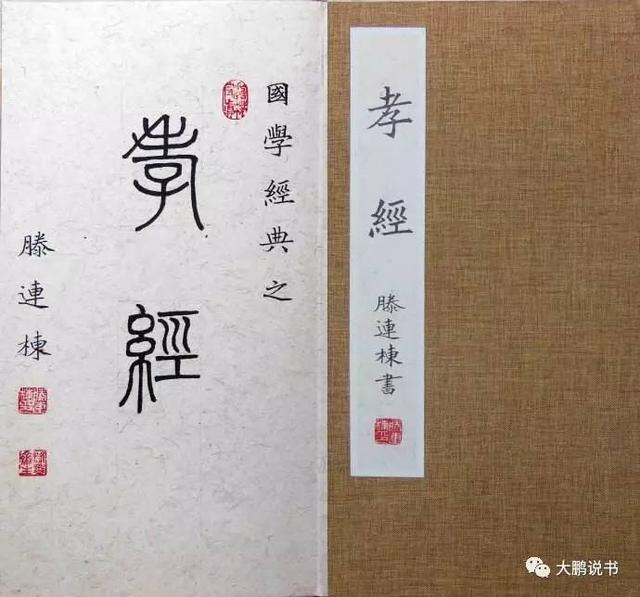 孝經
滕連棟書
國學經典之
孝經
滕連棟
大鹏说书